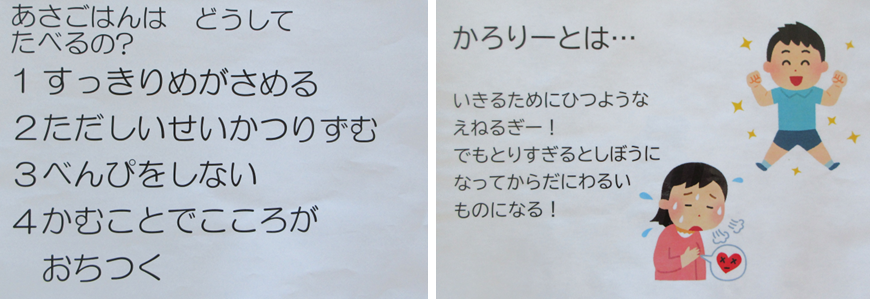 あさごはんは　どうして
たべるの?
1 すっきりめがさめる
2ただしいせいかつりずむ
3べんぴをしない
4かむことでこころが
おちつく
かろりーとは…
いきるためにひつような
えねるぎー！
でもとりすぎるとしぼうに
なってからだにわるい
ものになる！